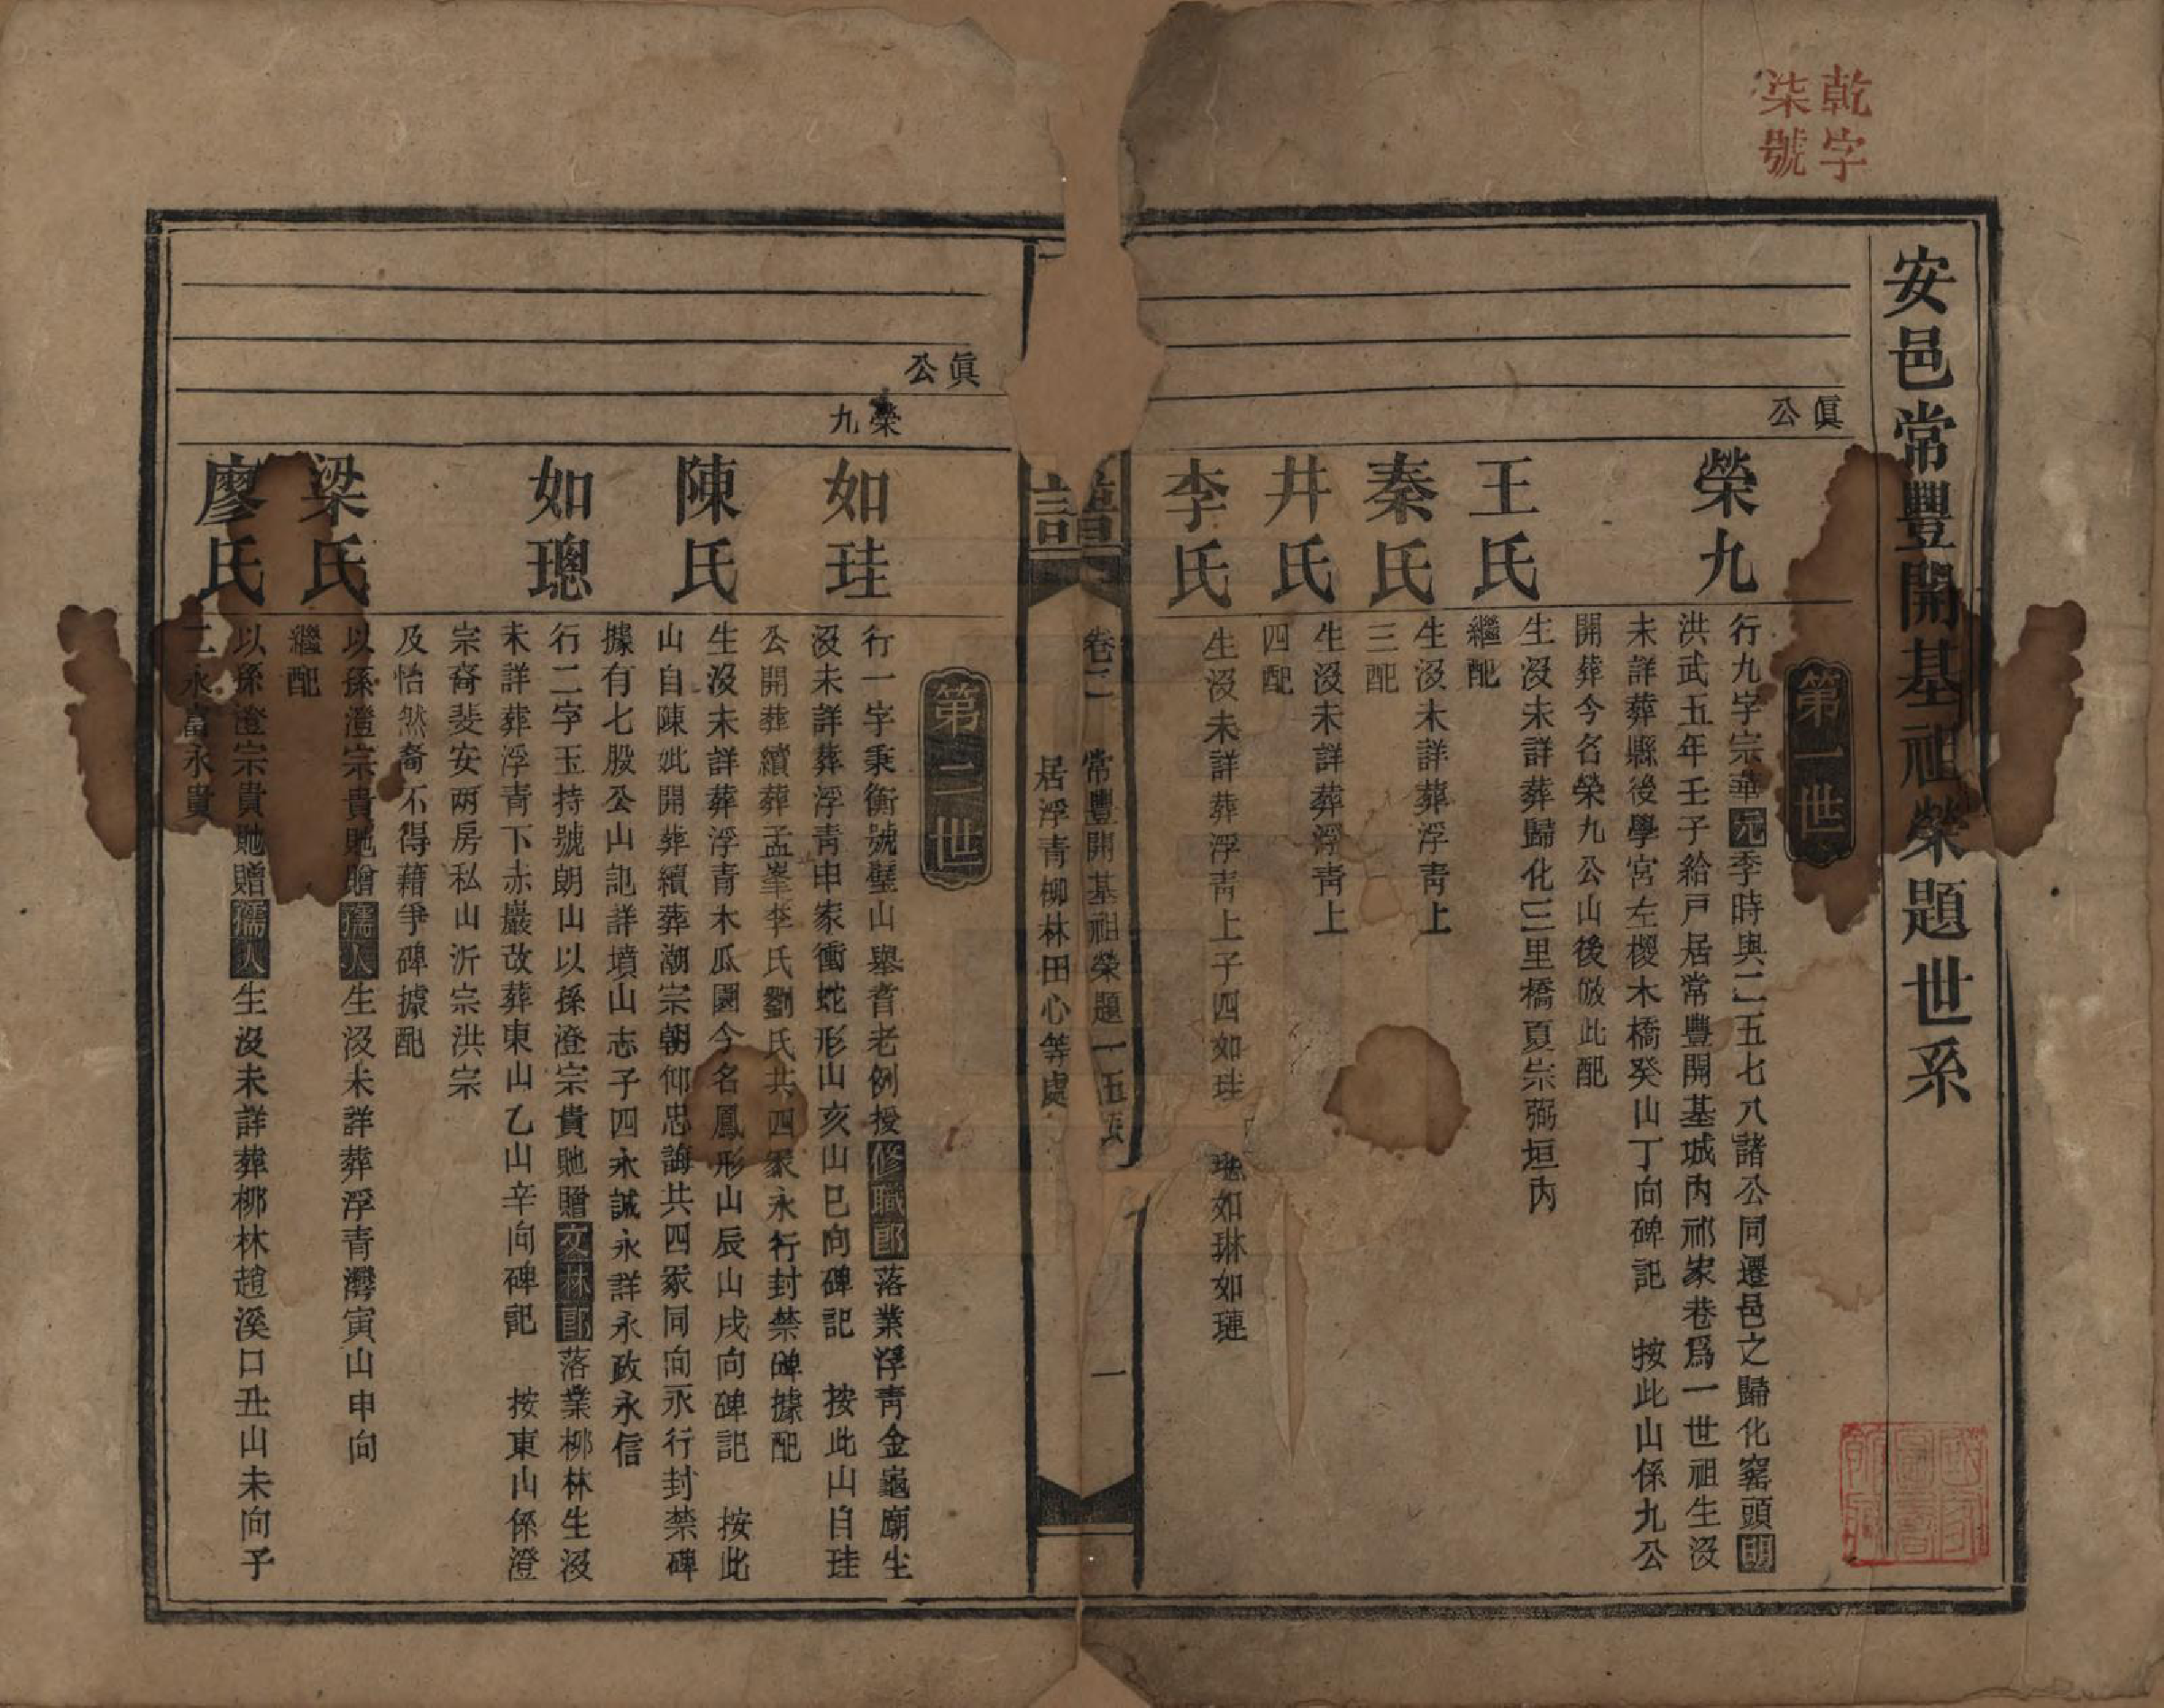 乾字
柒號
安邑常豐開基祖榮題世系
第一世
眞公
榮九
行九字宗華元季時與二五七八諸公同遷邑之歸化窰頭明
洪武五年壬子給戸居常豐開基城內祁家巷爲一世祖生沒
未詳葬縣後學宮左椶木橋癸山丁向碑記　按此山係九公
開葬今名榮九公山後倣此配
王氏
生沒未詳葬歸化三里橋夏宗弼垣內
繼配
秦氏
生沒未詳葬浮靑上
三配
井氏
生沒未詳葬浮靑上
四配
李氏
生沒未詳葬浮靑上子四如珪　璁如琳如璉
譜
卷二
常豐開基祖榮題一
居浮青柳林田心等處
一
第二世
眞公
榮九
如珪
行一字秉衡號璧山舉耆老例授修職郎落業浮靑金龜廟生
沒未詳葬浮靑申家衝蛇形山亥山巳向碑記　按此山自珪
公開葬續葬孟峯李氏劉氏共四冢永行封禁碑據配
陳氏
生沒未詳葬浮靑木瓜園今名鳳形山辰山戌向碑記　按此
山自陳妣開葬續葬潮宗朝仰忠誨共四冢同向永行封禁碑
據有七股公山記詳墳山志子四永誠永詳永政永信
如璁
行二字玉持號朗山以孫澄宗貴貤贈文林郎落業柳林生沒
未詳葬浮靑下赤巖改葬東山乙山辛向碑記　按東山係澄
宗裔裴安兩房私山沂宗洪宗
及怡然裔不得藉爭碑據配
梁氏
以孫澄宗貴貤贈孺人生沒未詳葬浮青灣寅山申向
繼配
廖氏
以孫澄宗貴貤贈孺人生沒未詳葬柳林趙溪口丑山未向子
二永富永貴